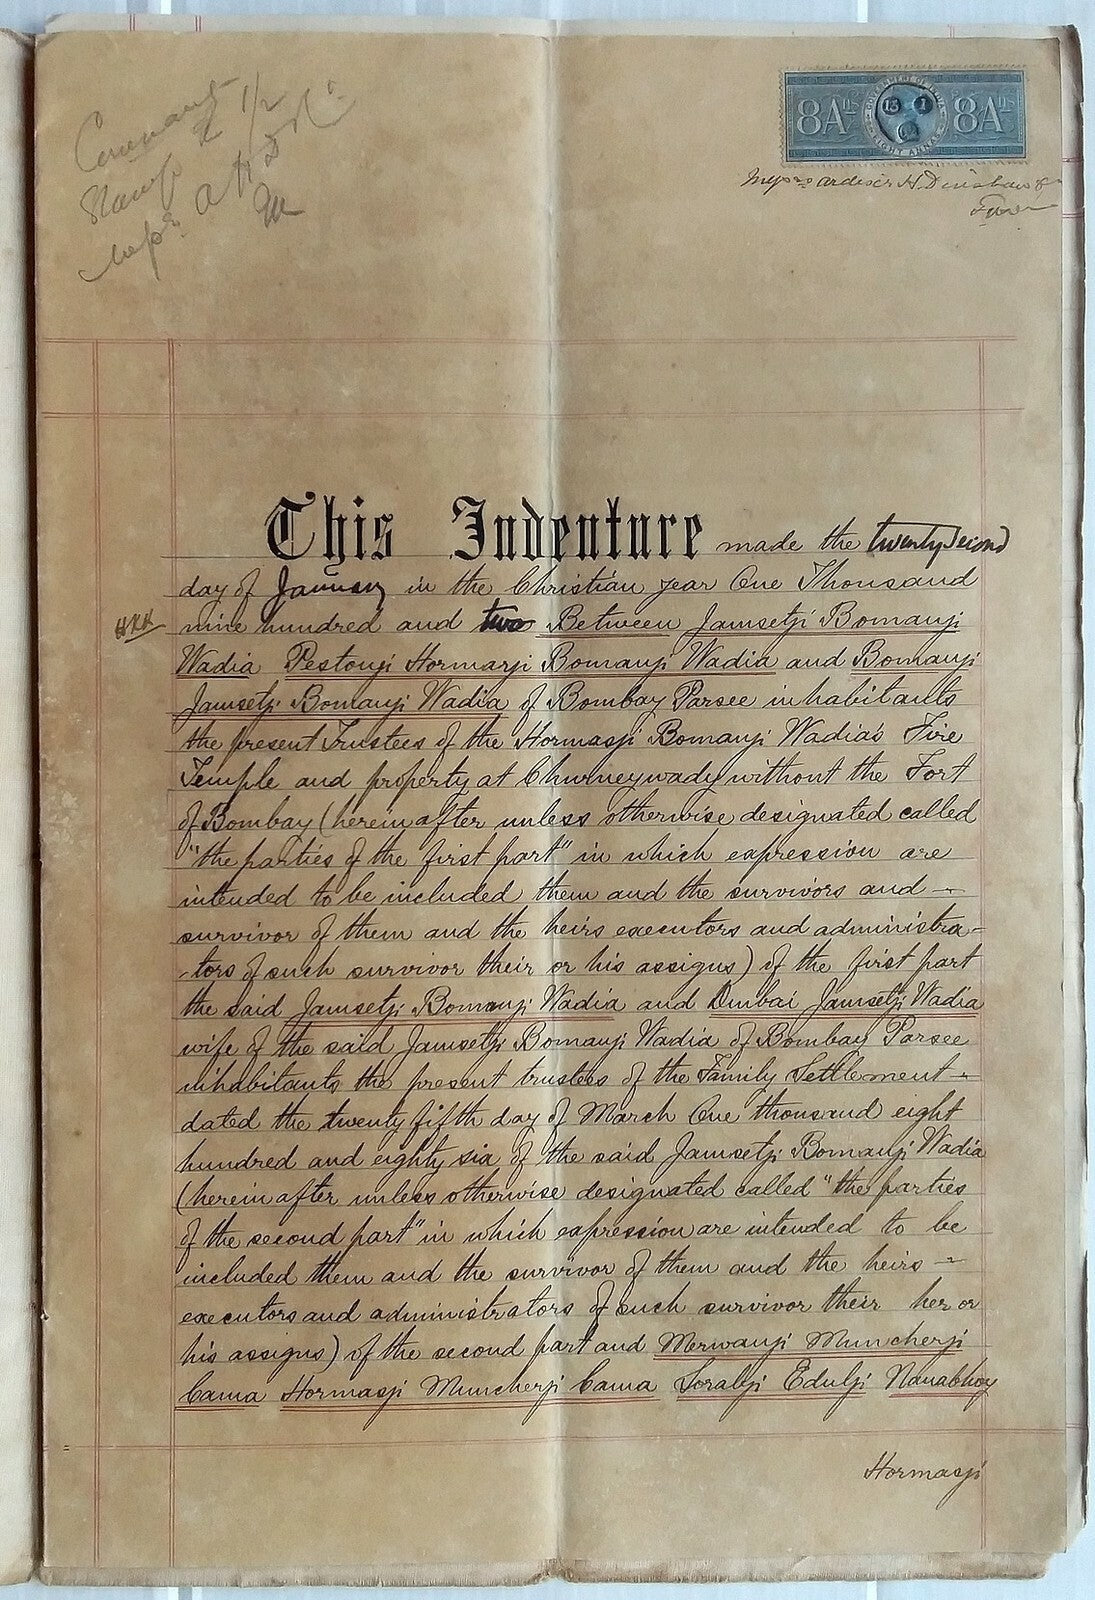 Covenant
Stamp 1/2
8 As 8 As
GOVERNMENT OF INDIA
EIGHT ANNAS
13 1
02
Messrs Ardesir H. Dinshaw &
This Indenture made the twenty second
day of January in the Christian year One Thousand
nine hundred and two Between Jamsetji Bomanji
Wadia Pestonji Hormarji Bomanji Wadia and Bomanji
Jamsetji Bomanji Wadia of Bombay Parsee inhabitants
the present Trustees of the Hormasji Bomanji Wadia's Fire
Temple and property at Churneywady without the Fort
of Bombay (hereinafter unless otherwise designated called
"the parties of the first part" in which expression are
intended to be included them and the survivors and -
survivor of them and the heirs executors and administra=
-tors of such survivor their or his assigns) of the first part
the said Jamsetji Bomanji Wadia and Dinbai Jamsetji Wadia
wife of the said Jamsetji Bomanji Wadia of Bombay Parsee
inhabitants the present trustees of the Family Settlement -
dated the twenty fifth day of March One thousand eight
hundred and eighty six of the said Jamsetji Bomanji Wadia
(hereinafter unless otherwise designated called "the parties
of the second part" in which expression are intended to be
included them and the survivor of them and the heirs -
executors and administrators of such survivor their her or
his assigns) of the second part and Merwanji Muncherji
Cama Hormasji Muncherji Cama Sorabji Edulji Nanabhoy
Hormasji